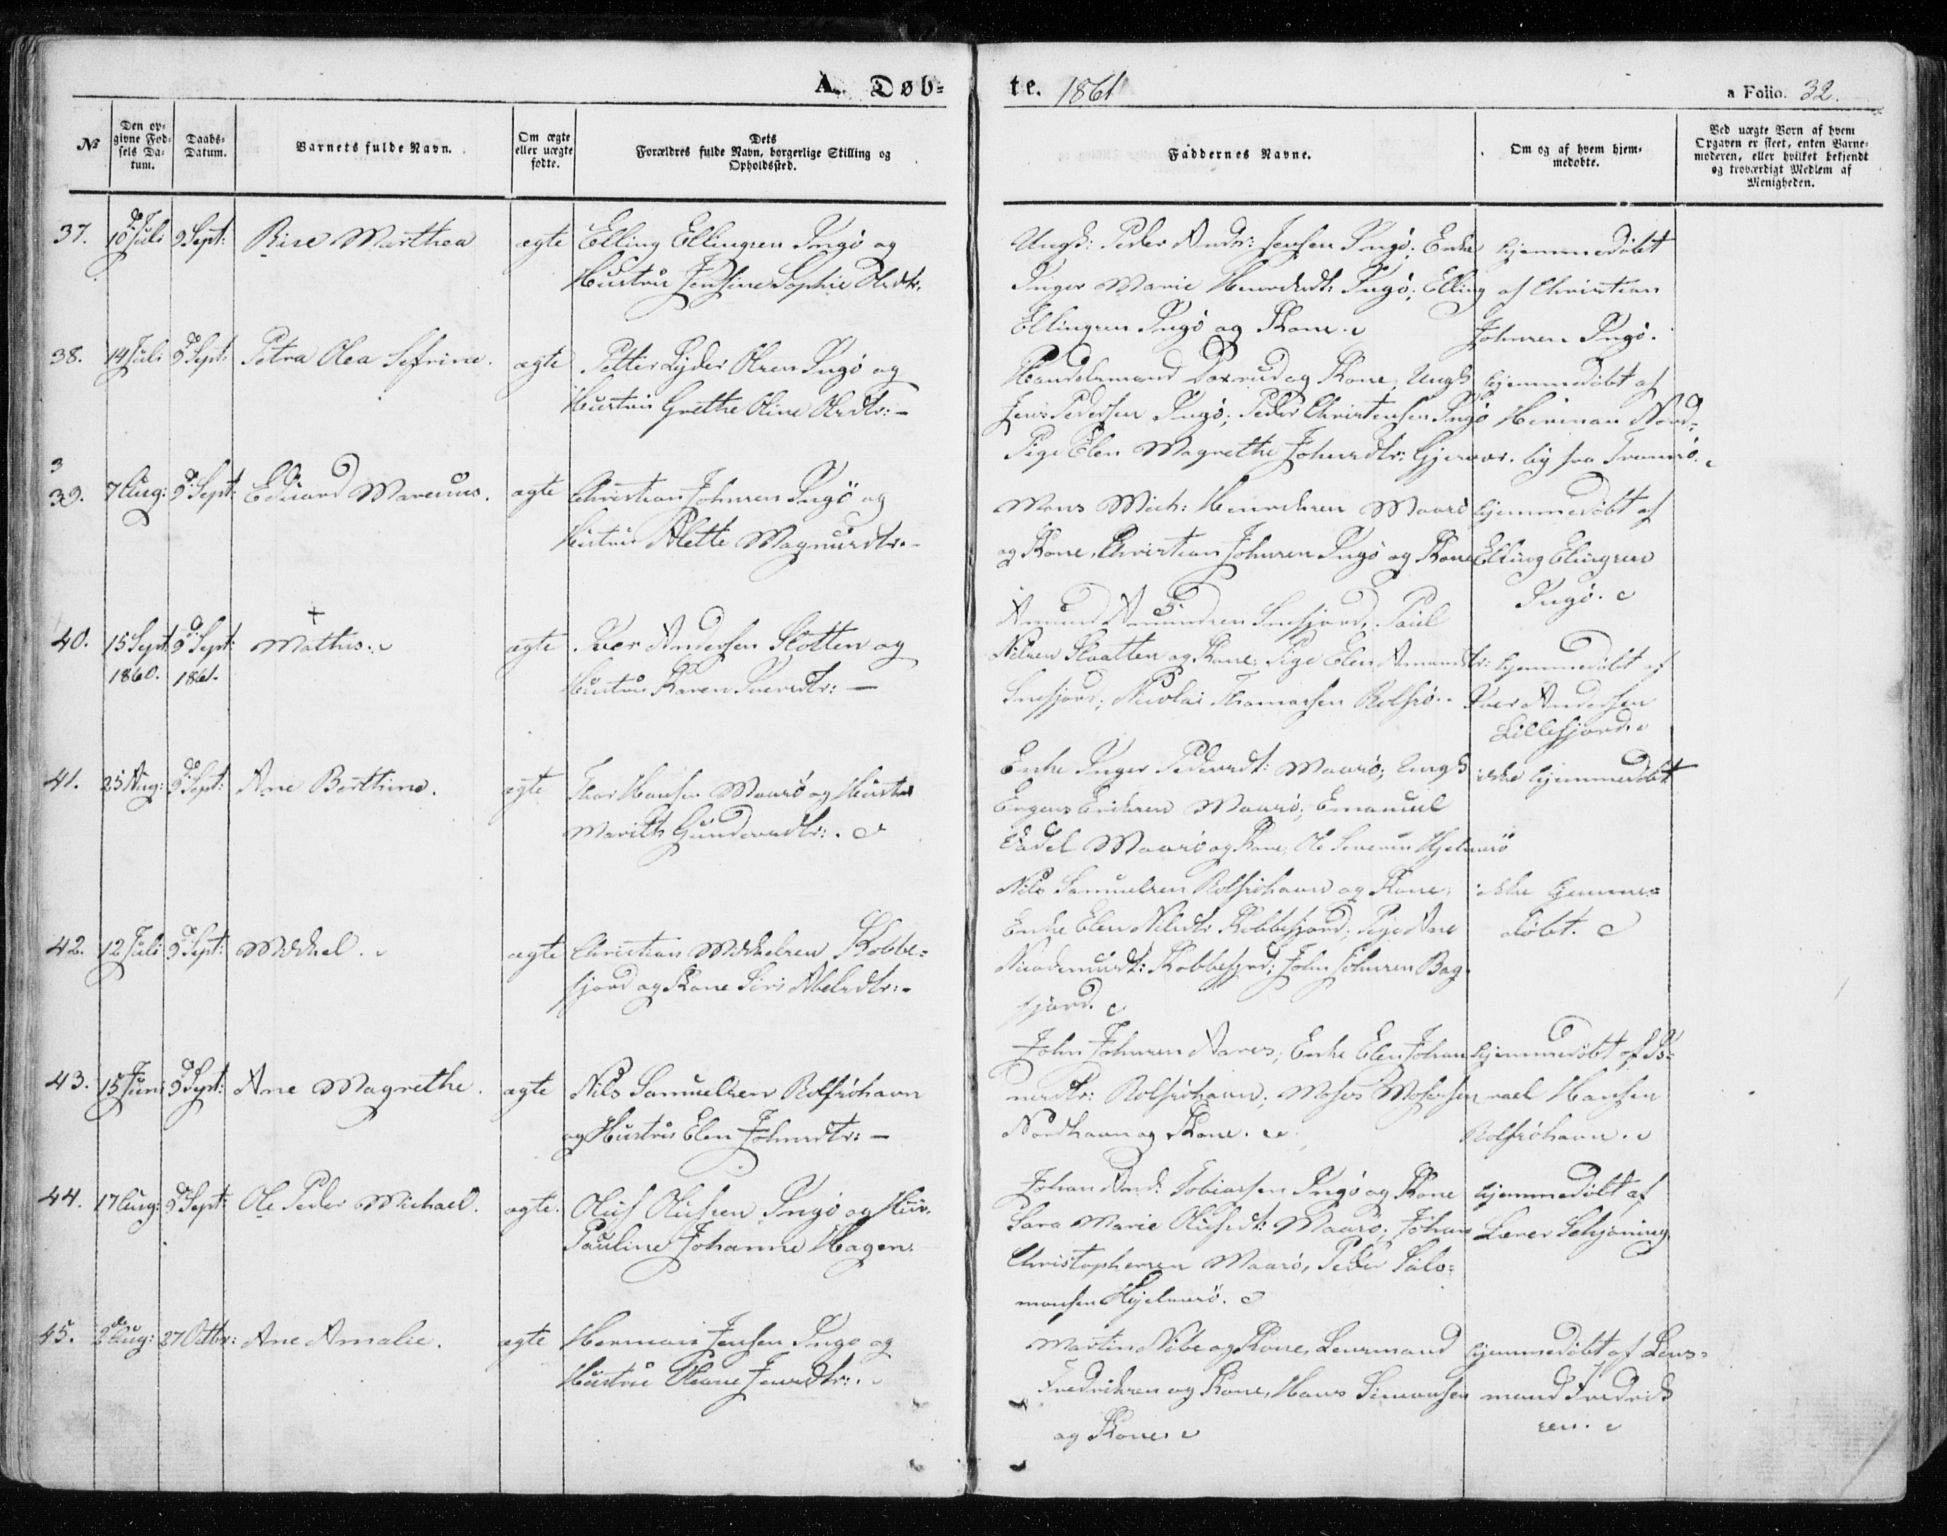 A. Døb-
te. 1861
a Folio. 32.
№
Den op-
givne Fød-
sels Da-
tum.
Daabs-
Datum.
Barnets fulde Navn.
Om ægte
eller uægte
fødte.
Dets
Forældres fulde Navn, borgerlige Stilling og
Opholdssted.
Faddernes Navne.
Om og af hvem hjem-
medøbte.
Ved uægte Born af hvem
Opgaven er skeet, enten Barne-
moderen, eller hvilket bekjendt
og troværdigt Medlem af
Menigheden.
37. 10 Juli 9 Sept: Marthea ægte Elling Ellingsen Ingø og
Hustru Sophie Olsdtr.
Ungk: Peder Andr: Jensen Ingø; Enke
Inger Marie Ingø; Elling
Ellingsen Ingø og Kone.
hjemmedøbt
af Christian
Johnsen Ingø.
38. 14 Juli 9 Sept: Petra Olea Sefrine. ægte Petter Lyder Olsen Ingø og
Hustru Grethe Oline Olsdtr: -
Handelsmand og Kone; Ungk
Jens Pedersen Ingø; Peder Christensen Ingø
Pige Elen Magrethe Johnsdtr: Gjesvær.
hjemmedøbt af
Herman Nord-
by fra Tromsø.
3
39. 7 Aug: 9 Sept: Eduard Marenus. ægte Christian Johnsen Ingø og
Hustru Alette Magnusdtr: -
Mons Mich: Henriksen Maasø
og Kone, Christian Johnsen Ingø og Kone
hjemmedøbt af
Elling Elingsen
Ingø.
40. 15 Sept 9 Sept: Mathis. ægte Iver Andersen Slotten og
1860. 1861.
Hustru Karen Iversdtr: -
Amund Amundsen Snefjord, Paul
Nilsen Slaatten og Kone; Pige Elen Amundsdtr:
Snefjord; Nicolai Thomassen Rolfsø.
hjemmedøbt af
Iver Andersen
Lillefjord
41. 25 Aug: 9 Sept: Ane Berthine. ægte Thor Hansen Maasø og Hustru
Marith Gundersdtr:.
Enke Inger Pedersdt: Maasø; Ungk
Eriksen Maasø; Emanuel
Maasø og Kone, Ole Severin Hjelmsø
ikke hjemmedøbt
42. 12 Juli 9 Sept: Mikkel. ægte Christian Mikkelsen Kobbe-
fjord og Kone Siri Abelsdtr: -
Nils Samuelsen Rolfsøhavn og Kone;
Enke Elen Nilsdtr Kobbefjord; Pige Ane
Kobbefjord; John Johnsen Bag-
fjord.
ikke hjemme-
døbt.
43. 15 Juni 9 Sept: Ane Magrethe. ægte Nils Samuelsen Rolfsøhavn
og Hustru Elen Johnsdtr: -
John Johnsen; Enke Elen Johan-
nesdtr: Rolfsøhavn; Moses Mosesen
Nordhavn og Kone.
hjemmedøbt af Is-
rael Hansen
Rolfsøhavn.
44. 17 Aug: 9 Sept: Ole Peder Michael. ægte. Oluf Olufsen Ingø og Hus.
Pauline Johanne Hagen.
Johan And: Tobiasen Ingø og Kone
Sara Marie Olufsdt: Maasø; Johan
Christophersen Maasø, Peder Salo-
monsen Hjelmsø.
hjemmedøbt af
Lærer Schjøning
45. 2 Aug: 27 Octbr: Ane Amalie. ægte Herman Jensen Ingø og
Hustru Oleane Jensdtr:.
Martin Nibe og Kone, Lensmand
Fredriksen og Kone, Hans Simonsen
og Kone.
hjemmedøbt af Lens-
mand Fredrik
sen.